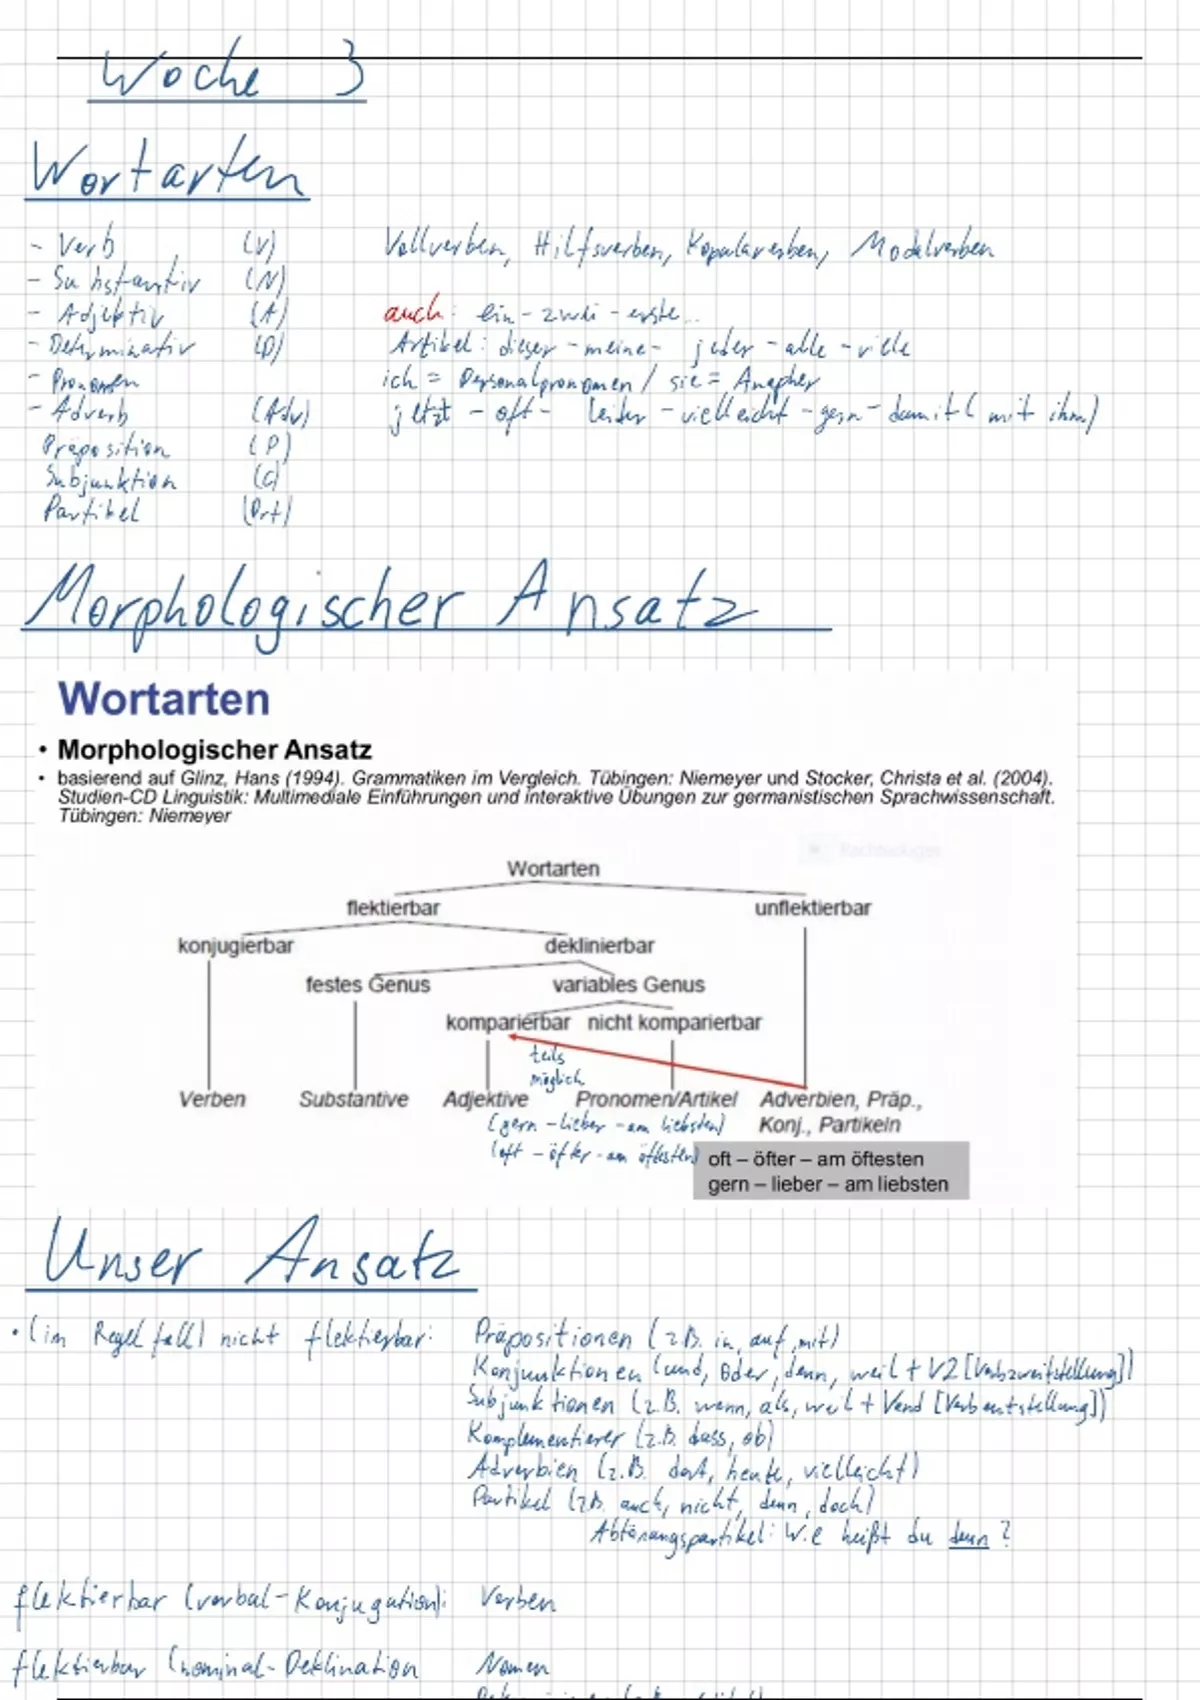 Woche 3
Wortarten
- Verb (V) Vollverben, Hilfsverben, Kopulaverben, Modalverben
- Substantiv (N)
- Adjektiv (A) auch: ein - zwei - erste..
- Determinativ (D) Artikel: dieser - meine - jeder - alle - viele
- Pronomen ich = Personalpronomen / sie = Anapher
- Adverb (Adv) jetzt - oft - leider - vielleicht - gern - damit ( mit ihm)
Präposition (P)
Subjunktion (C)
Partikel (Prt)
Morphologischer Ansatz
Wortarten
• Morphologischer Ansatz
• basierend auf Glinz, Hans (1994). Grammatiken im Vergleich. Tübingen: Niemeyer und Stocker, Christa et al. (2004).
Studien-CD Linguistik: Multimediale Einführungen und interaktive Übungen zur germanistischen Sprachwissenschaft.
Tübingen: Niemeyer
Wortarten
flektierbar unflektierbar
konjugierbar deklinierbar
festes Genus variables Genus
komparierbar nicht komparierbar
teils
möglich
Verben Substantive Adjektive Pronomen/Artikel Adverbien, Präp.,
Konj., Partikeln
(gern - lieber - am liebsten)
(oft - öfter - am öftesten)
oft – öfter – am öftesten
gern – lieber – am liebsten
Unser Ansatz
• (im Regelfall) nicht flektierbar: Präpositionen (z.B. in, auf, mit)
Konjunktionen (und, oder, denn, weil + V2 [Verbzweitstellung])
Subjunktionen (z.B. wenn, als, weil + Vend [Verbendstellung])
Komplementierer (z.B. dass, ob)
Adverbien (z.B. dort, heute, vielleicht)
Partikel (z.B. auch, nicht, denn, doch)
Abtönungspartikel: Wie heißt du denn?
flektierbar (verbal-Konjugation): Verben
flektierbar (nominal-Deklination Nomen